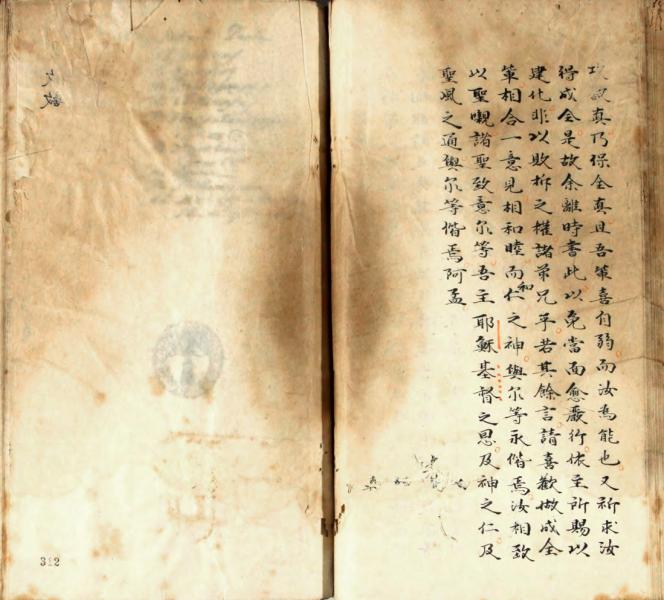 真乃保全真且吾輩喜自弱而汝為能也又祈求汝
得成全是故余離時書此以免當面愈嚴行依主所賜以
建化非以敗拆之權諸弟兄乎若其餘言請喜歡做成全
輩相合一意見相和睦而仁和之神與尔等永偕焉汝相致
以聖嚫諸聖致意尔等吾主耶穌基督之恩及神之仁及
聖風之通與尔等偕焉阿孟
312